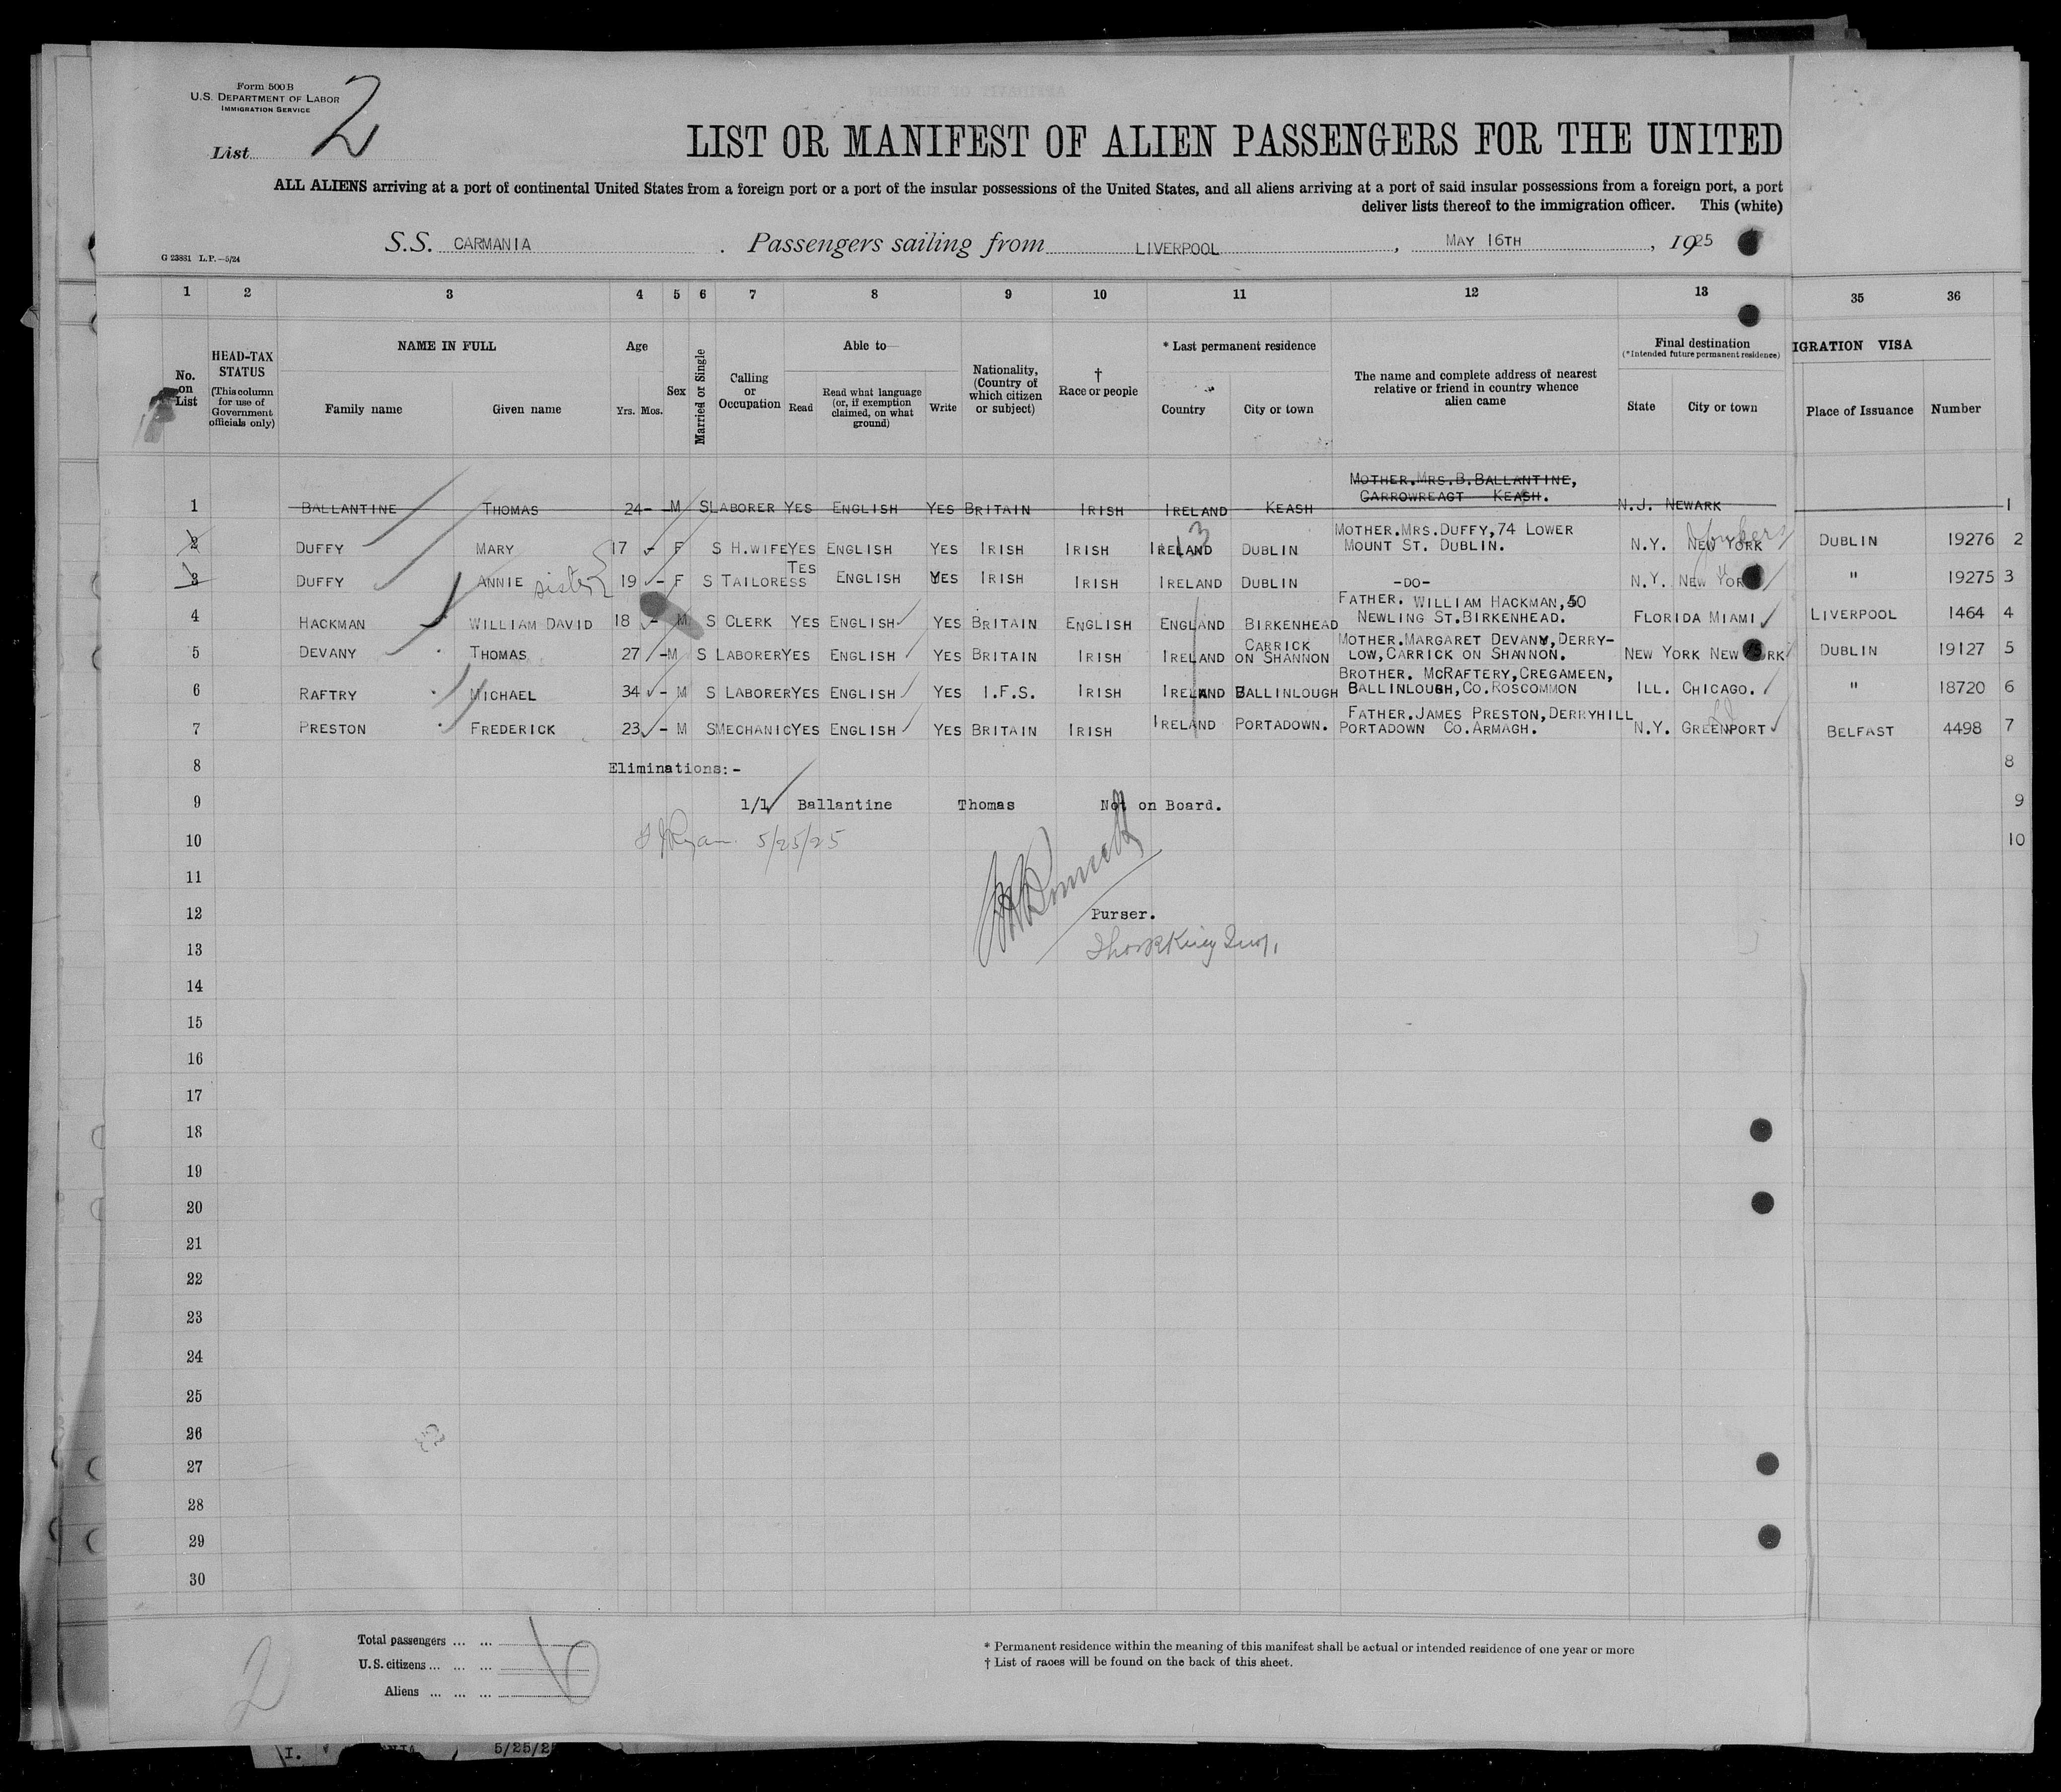 Form 500B
U.S. DEPARTMENT OF LABOR
IMMIGRATION SERVICE
List 2
LIST OR MANIFEST OF ALIEN PASSENGERS FOR THE UNITED
ALL ALIENS arriving at a port of continental United States from a foreign port or a port of the insular possessions of the United States, and all aliens arriving at a port of said insular possessions from a foreign port, a port
deliver lists thereof to the immigration officer. This (white)
S.S. CARMANIA . Passengers sailing from LIVERPOOL , MAY 16TH , 1925
G 23881 L.P.—5/24
1 2 3 4 5 6 7 8 9 10 11 12 13 35 36
No. on List
HEAD-TAX STATUS (This column for use of Government officials only)
NAME IN FULL Family name Given name
Age Yrs. Mos.
Sex
Married or Single
Calling or Occupation
Able to Read Read what language (or, if exemption claimed, on what ground) Write
Nationality, (Country of which citizen or subject)
† Race or people
* Last permanent residence Country City or town
The name and complete address of nearest relative or friend in country whence alien came
Final destination (*Intended future permanent residence) State City or town
IGRATION VISA
Place of Issuance Number
1 BALLANTINE THOMAS 24 - M S LABORER YES ENGLISH YES BRITAIN IRISH IRELAND KEASH MOTHER.MRS.B.BALLANTINE, CARROWREAGT KEASH. N.J. NEWARK 1
2 DUFFY MARY 17 - F S H.WIFE YES ENGLISH YES IRISH IRISH IRELAND 13 DUBLIN MOTHER.MRS.DUFFY,74 LOWER MOUNT ST. DUBLIN. N.Y. NEW YORK Yonkers DUBLIN 19276 2
3 DUFFY ANNIE sister 19 - F S TAILORESS TES ENGLISH YES IRISH IRISH IRELAND DUBLIN -DO- N.Y. NEW YORK " 19275 3
4 HACKMAN WILLIAM DAVID 18 - M S CLERK YES ENGLISH YES BRITAIN ENGLISH ENGLAND BIRKENHEAD FATHER. WILLIAM HACKMAN,50 NEWLING ST.BIRKENHEAD. FLORIDA MIAMI LIVERPOOL 1464 4
5 DEVANY THOMAS 27 - M S LABORER YES ENGLISH YES BRITAIN IRISH IRELAND CARRICK ON SHANNON MOTHER.MARGARET DEVANY,DERRY-LOW,CARRICK ON SHANNON. NEW YORK NEW YORK DUBLIN 19127 5
6 RAFTRY MICHAEL 34 - M S LABORER YES ENGLISH YES I.F.S. IRISH IRELAND BALLINLOUGH BROTHER. MCRAFTERY,CREGAMEEN, BALLINLOUGH,CO.ROSCOMMON ILL. CHICAGO. " 18720 6
7 PRESTON FREDERICK 23 - M S MECHANIC YES ENGLISH YES BRITAIN IRISH IRELAND PORTADOWN. FATHER.JAMES PRESTON,DERRYHILL PORTADOWN CO.ARMAGH. N.Y. GREENPORT BELFAST 4498 7
8 Eliminations:- 8
9 1/1 Ballantine Thomas Not on Board. 9
10 Ryan 5/25/25 10
11
12 Purser.
13
14
15
16
17
18
19
20
21
22
23
24
25
26
27
28
29
30
Total passengers ... ...
U.S. citizens ... ... ...
Aliens ... ... ...
6
2
* Permanent residence within the meaning of this manifest shall be actual or intended residence of one year or more
† List of races will be found on the back of this sheet.
5/25/25